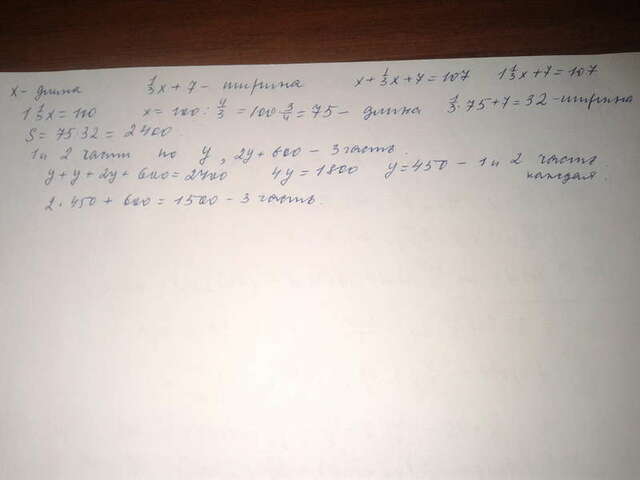 x - длина 1/3x + 7 - ширина x + 1/3x + 7 = 107 1 1/3x + 7 = 107
1 1/3x = 100 x = 100 : 4/3 = 100 · 3/4 = 75 - длина 1/3 · 75 + 7 = 32 - ширина
S = 75 · 32 = 2400.
1 и 2 части по y, 2y + 600 - 3 часть.
y + y + 2y + 600 = 2400 4y = 1800 y = 450 - 1 и 2 часть
каждая.
2 · 450 + 600 = 1500 - 3 часть.